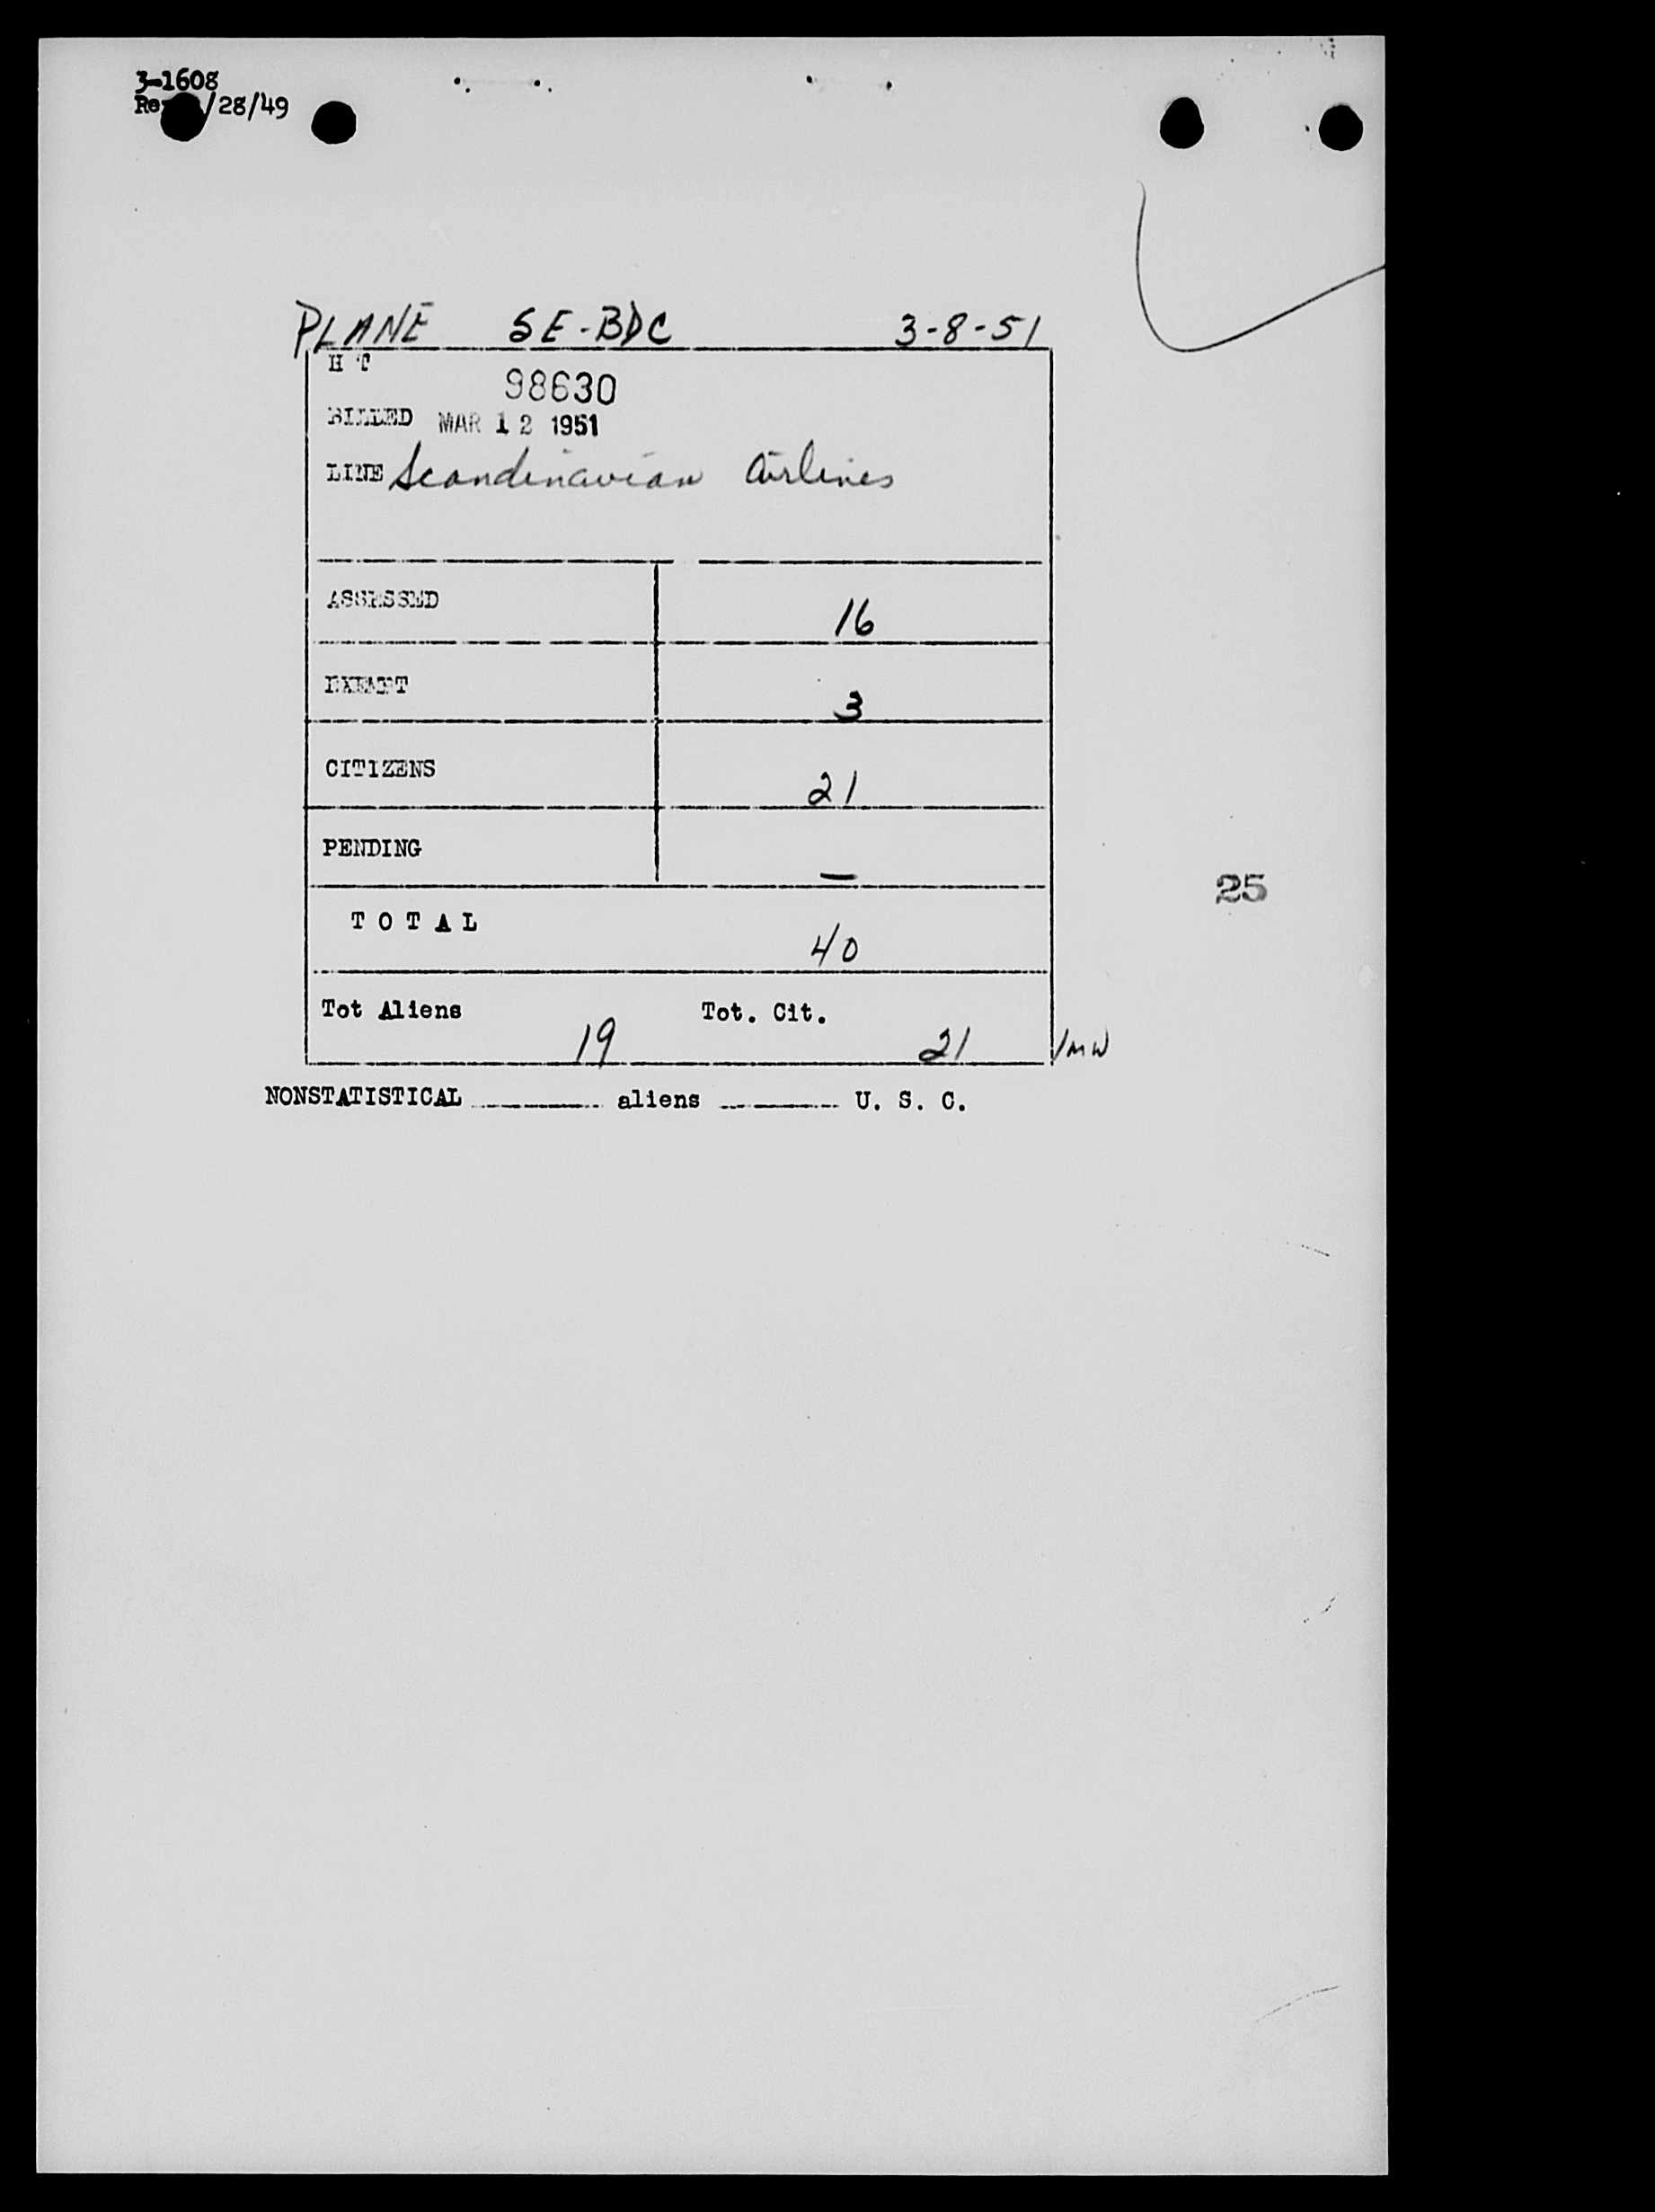 3-1608
/28/49
PLANE SE-BDC 3-8-51
H T
98630
BILLED MAR 12 1951
LINE Scandinavian Airlines
ASSESSED 16
EXEMPT 3
CITIZENS 21
PENDING —
25
TOTAL 40
Tot Aliens 19 Tot. Cit. 21
NONSTATISTICAL ______ aliens ______ U. S. C.